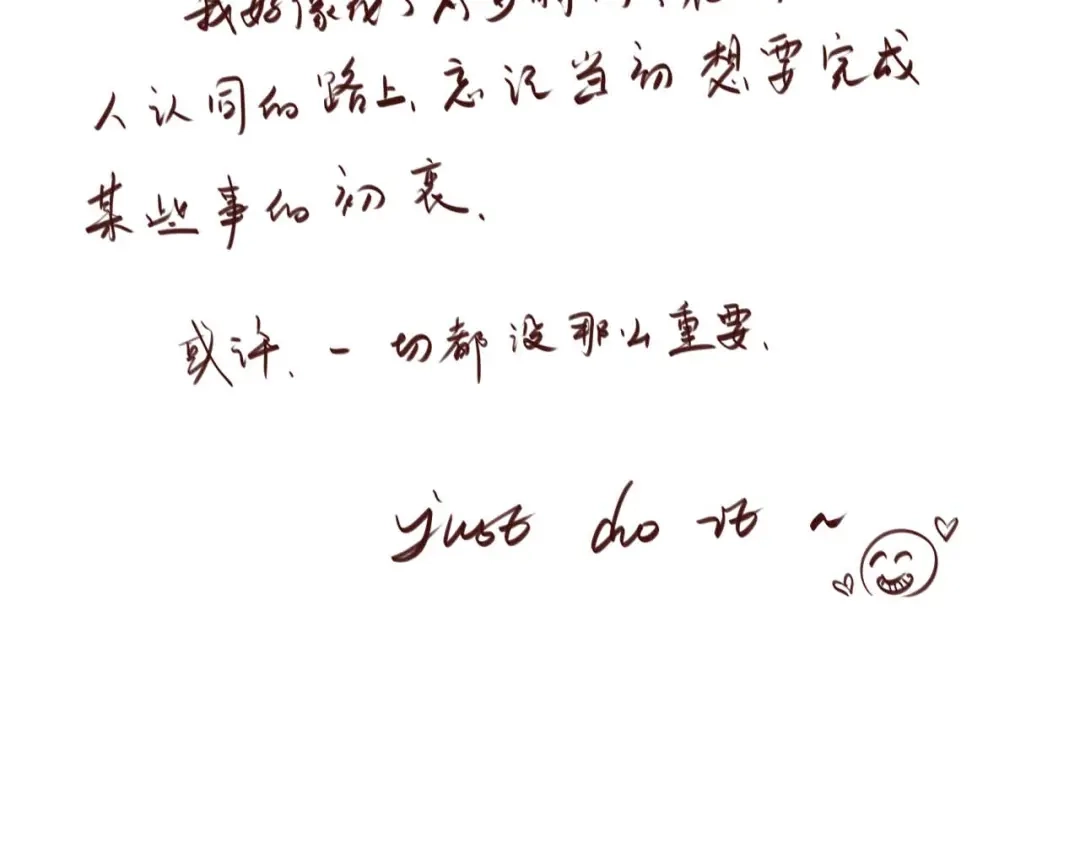 我好像
人认同的路上、忘记当初想要完成
某些事的初衷、
或许、一切都没那么重要、
just do it ~